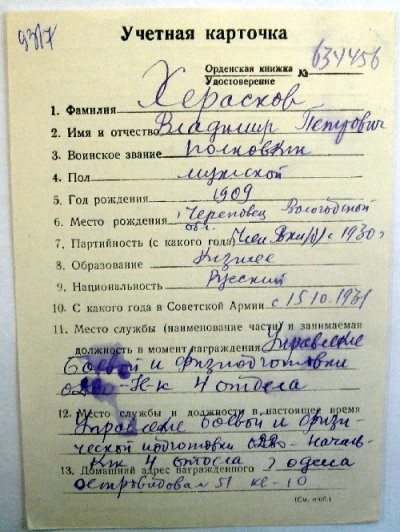 9317
Учетная карточка
Орденская книжка
Удостоверение № 634456
1. Фамилия Херасков
2. Имя и отчество Владимир Петрович
3. Воинское звание полковник
4. Пол мужской
5. Год рождения 1909
6. Место рождения г. Череповец Вологодской
обл.
7. Партийность (с какого года) Член ВКП(б) с 1930 г
8. Образование Низшее
9. Национальность Русский
10. С какого года в Советской Армии с 15.10.1931
11. Место службы (наименование части) и занимаемая
должность в момент награждения Управление
боевой и физподготовки
Н-к 4 отдела
12. Место службы и должности в настоящее время
Управление боевой и физи-
ческой подготовки началь-
ник 4 отдела
13. Домашний адрес награжденного г Одесса
51 кв-10
(См. н/об.)